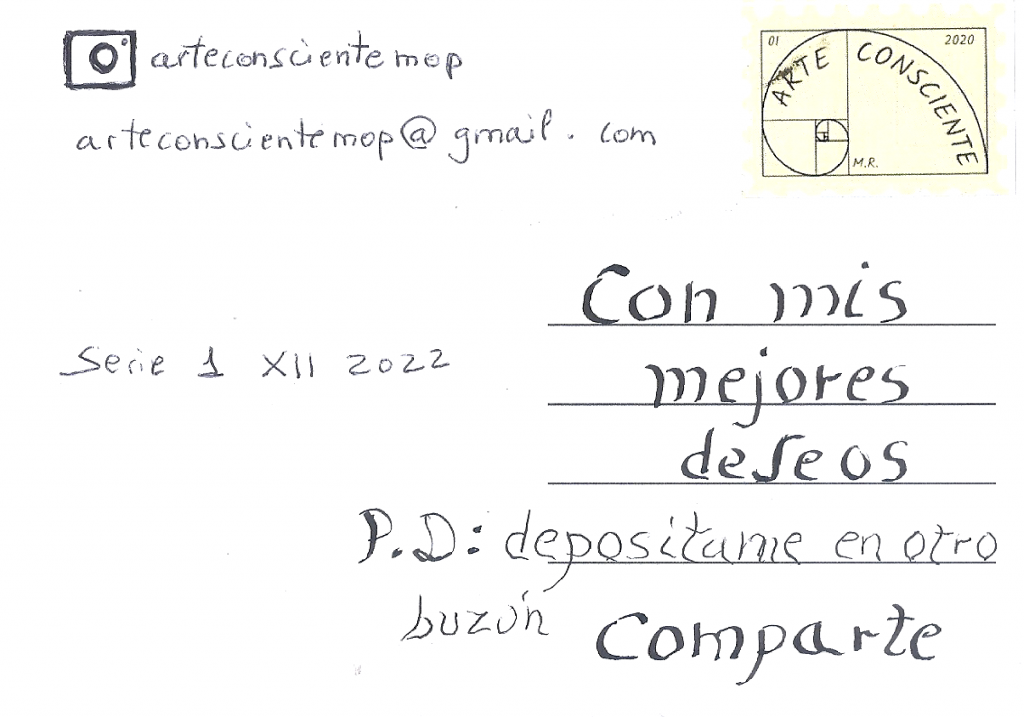 arteconscientemop
arteconscientemop@gmail.com
01
2020
ARTE CONSCIENTE
M.R.
Con mis
mejores
deseos
Serie 1 XII 2022
P.D: depositame en otro
buzón
Comparte